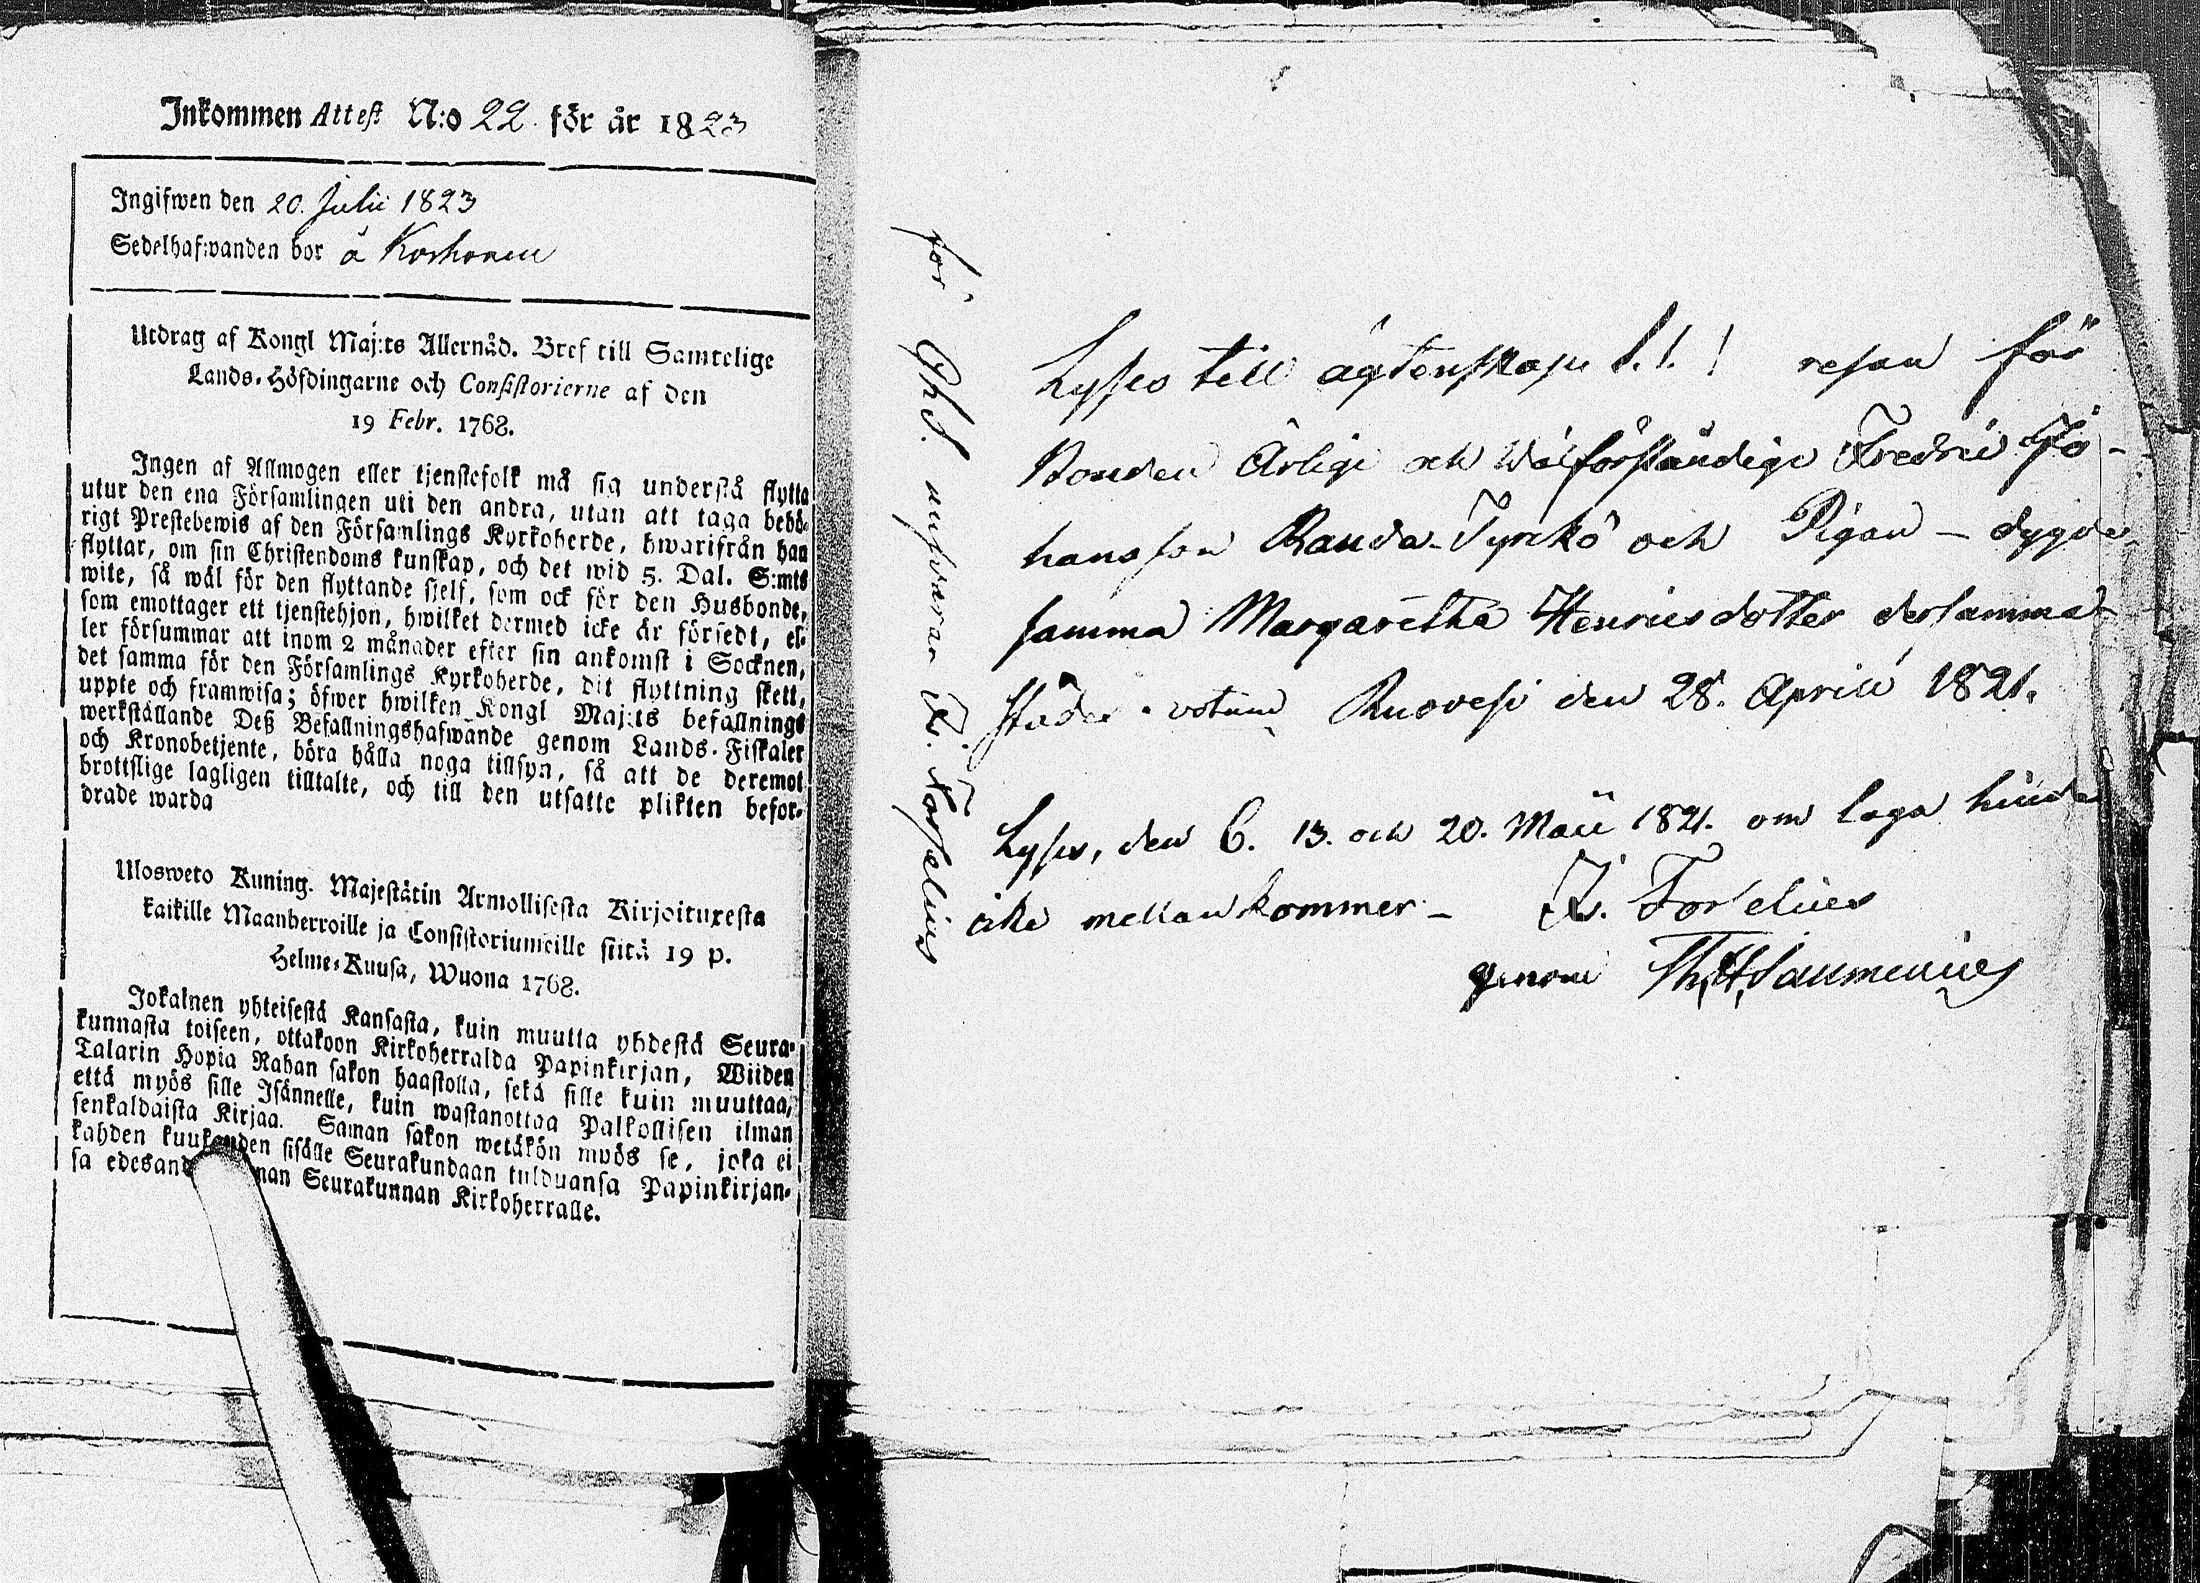 Inkommen Attest N:o 22. för år 1823
Ingifwen den 20. Julii 1823
Sedelhafwanden bor å Korhonen
Utdrag af Kongl Maj:ts Allernåd. Bref till Samtelige
Lands-Höfdingarne och Consistorierne af den
19 Febr. 1768.
Ingen af Allmogen eller tjenstefolk må sig understå flytta
utur den ena Församlingen uti den andra, utan att taga behö-
rigt Prestebewis af den Församlings Kyrkoherde, hwarifrån han
flyttar, om sin Christendoms kunskap, och det wid 5. Dal. S:mts
wite, så wäl för den flyttande sjelf, som ock för den Husbonde,
som emottager ett tjenstehjon, hwilket dermed icke är försedt, el-
ler försummar att inom 2 månader efter sin ankomst i Socknen,
det samma för den Församlings Kyrkoherde, dit flyttning skett,
uppte och framwisa; öfwer hwilken Kongl Maj:ts befallnings
werkställande Deß Befallningshafwande genom Lands-Fiskaler
och Kronobetjente, böra hålla noga tillsyn, så att de deremot
brottslige lagligen tilltalte, och till den utsatte plikten befor-
drade warda
Ulosweto Kuning. Majestätin Armollisesta Kirjoituxesta
kaikille Maanherroille ja Consistoriumeille siitä 19 p.
Helme-Kuusa, Wuona 1768.
Jokainen yhteisestä Kansasta, kuin muutta yhdestä Seura-
kunnasta toiseen, ottakoon Kirkoherralda Papinkirjan, Wiiden
Talarin Hopia Rahan sakon haastolla, sekä sille kuin muuttaa,
että myös sille Isännelle, kuin wastanottaa Palkollisen ilman
senkaldaista Kirjaa. Saman sakon wetäkön myös se, joka ei
kahden kuukauden sisälle Seurakundaan tulduansa Papinkirjan-
sa edesand nan Seurakunnan Kirkoherralle.
för Phd. ansvarar Z. Forselius
Lyses till ägtenskap 1. 1. ! resan för
Bonden Ärlige och Wälförståndige Fredric Jo-
hansson Rauda-Tyrckö och Pigan – dygde-
samma Margaretha Henricsdotter dersamma-
städes. votum Ruovesi den 28. April 1821.
Lyses, den 6. 13. och 20. Maii 1821. om laga hinder
icke mellankommer – Z. Forselius
genom Th. H. Saumenius